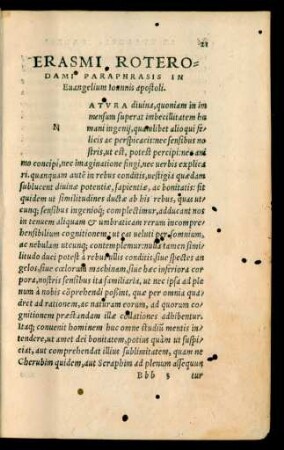 21
ERASMI ROTERO-
DAMI PARAPHRASIS IN
Euangelium Ioannis apostoli.
NATVRA diuina, quoniam in im
mensum superat imbecillitatem hu
mani ingenij, quamlibet alioqui fe
licis ac perspicacis: nec sensibus no
stris, ut est, potest percipi: nec ani
mo concipi, nec imaginatione fingi, nec uerbis explica
ri. quanquam autē in rebus conditis, uestigia quædam
sublucent diuinæ potentiæ, sapientiæ, ac bonitatis: sit
quidem ut similitudines ductæ ab his rebus, quas ut
cunq; sensibus ingenioq; complectimur, adducant nos
in tenuem aliquam & umbraticam rerum incompre=
hensibilium cognitionem, ut eas ueluti per somnium,
ac nebulam utcunq; contemplemur: nulla tamen simi
litudo duci potest à rebus illis conditis, siue spectes an
gelos, siue cœlorum machinam, siue hæc inferiora cor
pora, nostris sensibus ita familiaria, ut nec ipsa ad ple
num à nobis cōprehendi possint, quæ per omnia qua
dret ad rationem, ac naturam eorum, ad quorum co
gnitionem præstandam illæ collationes adhibentur.
Itaq; conuenit hominem huc omne studiū mentis in
tendere, ut amet dei bonitatem, potius quàm ut suspi
ciat, aut comprehendat illius sublimitatem, quam ne
Cherubin quidem, aut Seraphim ad plenum assequun
Bbb 5 tur